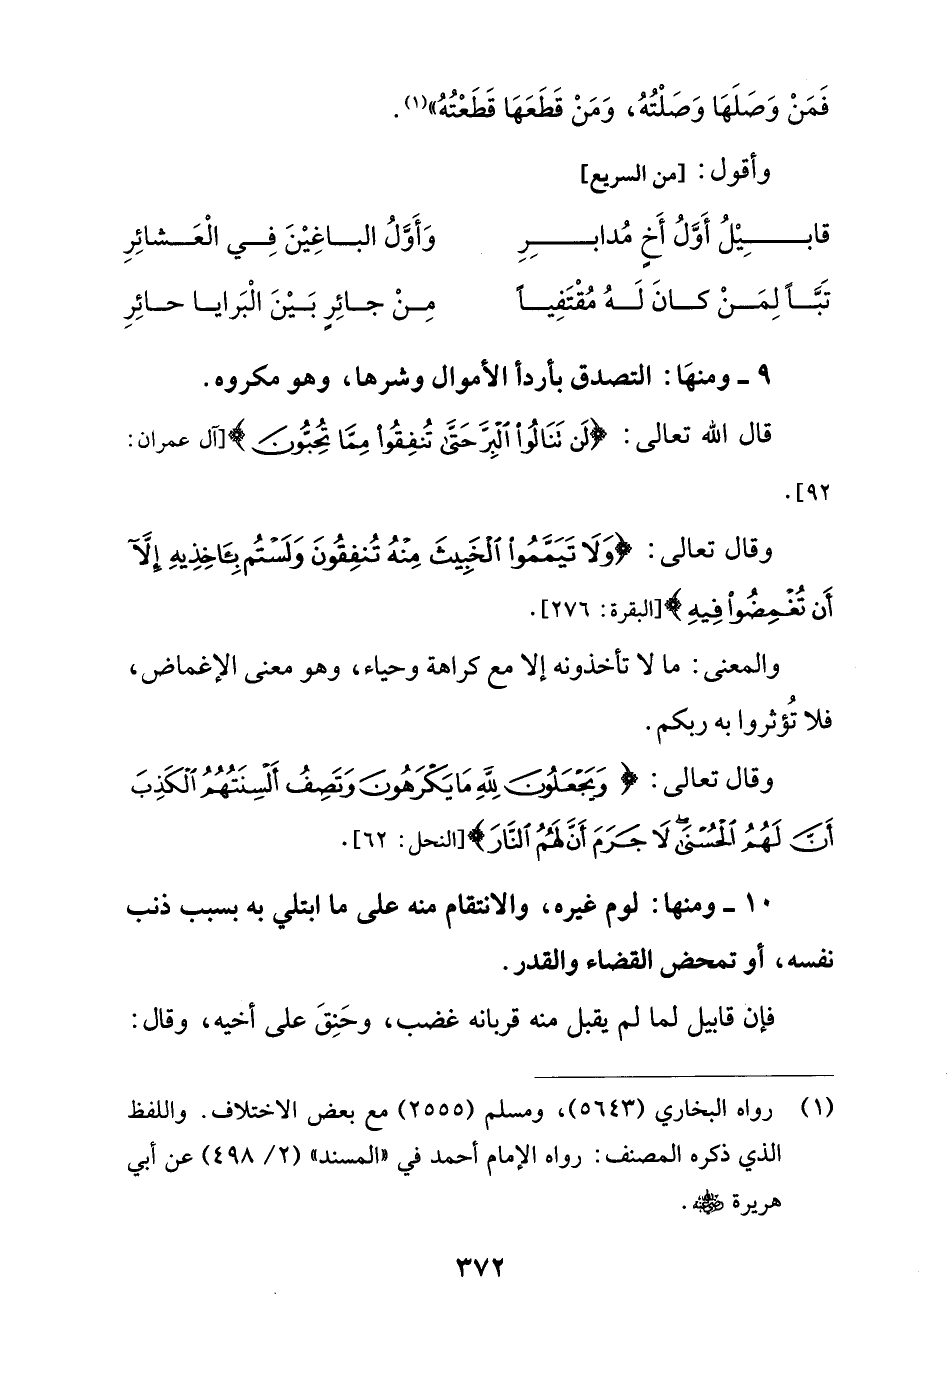 فَمَنْ وَصَلَهَا وَصَلْتُهُ، وَمَنْ قَطَعَهَا قَطَعْتُهُ»(١).
وأقول: [من السريع]
قابـــــــيْلُ أَوَّلُ أَخٍ مُدابـــــــرِ وَأَوَّلُ البـــاغِيْنَ فِـــي الْعَـــشائرِ
تَبًّـــا لِمَـــنْ كـــانَ لَـــهُ مُقْتَفِيـــاً مِـــنْ جـــائرٍ بَـــيْنَ الْبَرايـــا حـــائرِ
٩ ـ ومنهَا: التصدق بأردأ الأموال وشرها، وهو مكروه.
قال الله تعالى: ﴿لَن تَنَالُوا۟ ٱلْبِرَّ حَتَّىٰ تُنفِقُوا۟ مِمَّا تُحِبُّونَ﴾[آل عمران:
٩٢].
وقال تعالى: ﴿وَلَا تَيَمَّمُوا۟ ٱلْخَبِيثَ مِنْهُ تُنفِقُونَ وَلَسْتُم بِـَٔاخِذِيهِ إِلَّآ
أَن تُغْمِضُوا۟ فِيهِ﴾[البقرة: ٢٧٦].
والمعنى: ما لا تأخذونه إلا مع كراهة وحياء، وهو معنى الإغماض،
فلا تُؤثروا به ربكم.
وقال تعالى: ﴿وَيَجْعَلُونَ لِلَّهِ مَا يَكْرَهُونَ وَتَصِفُ أَلْسِنَتُهُمُ ٱلْكَذِبَ
أَنَّ لَهُمُ ٱلْحُسْنَىٰ ۖ لَا جَرَمَ أَنَّ لَهُمُ ٱلنَّارَ﴾[النحل: ٦٢].
١٠ ـ ومنها: لوم غيره، والانتقام منه على ما ابتلي به بسبب ذنب
نفسه، أو تمحض القضاء والقدر.
فإن قابيل لما لم يقبل منه قربانه غضب، وحَنِقَ على أخيه، وقال:
(١) رواه البخاري (٥٦٤٣)، ومسلم (٢٥٥٥) مع بعض الاختلاف. واللفظ
الذي ذكره المصنف: رواه الإمام أحمد في «المسند» (٢/ ٤٩٨) عن أبي
هريرة رضي الله عنه.
٣٧٢